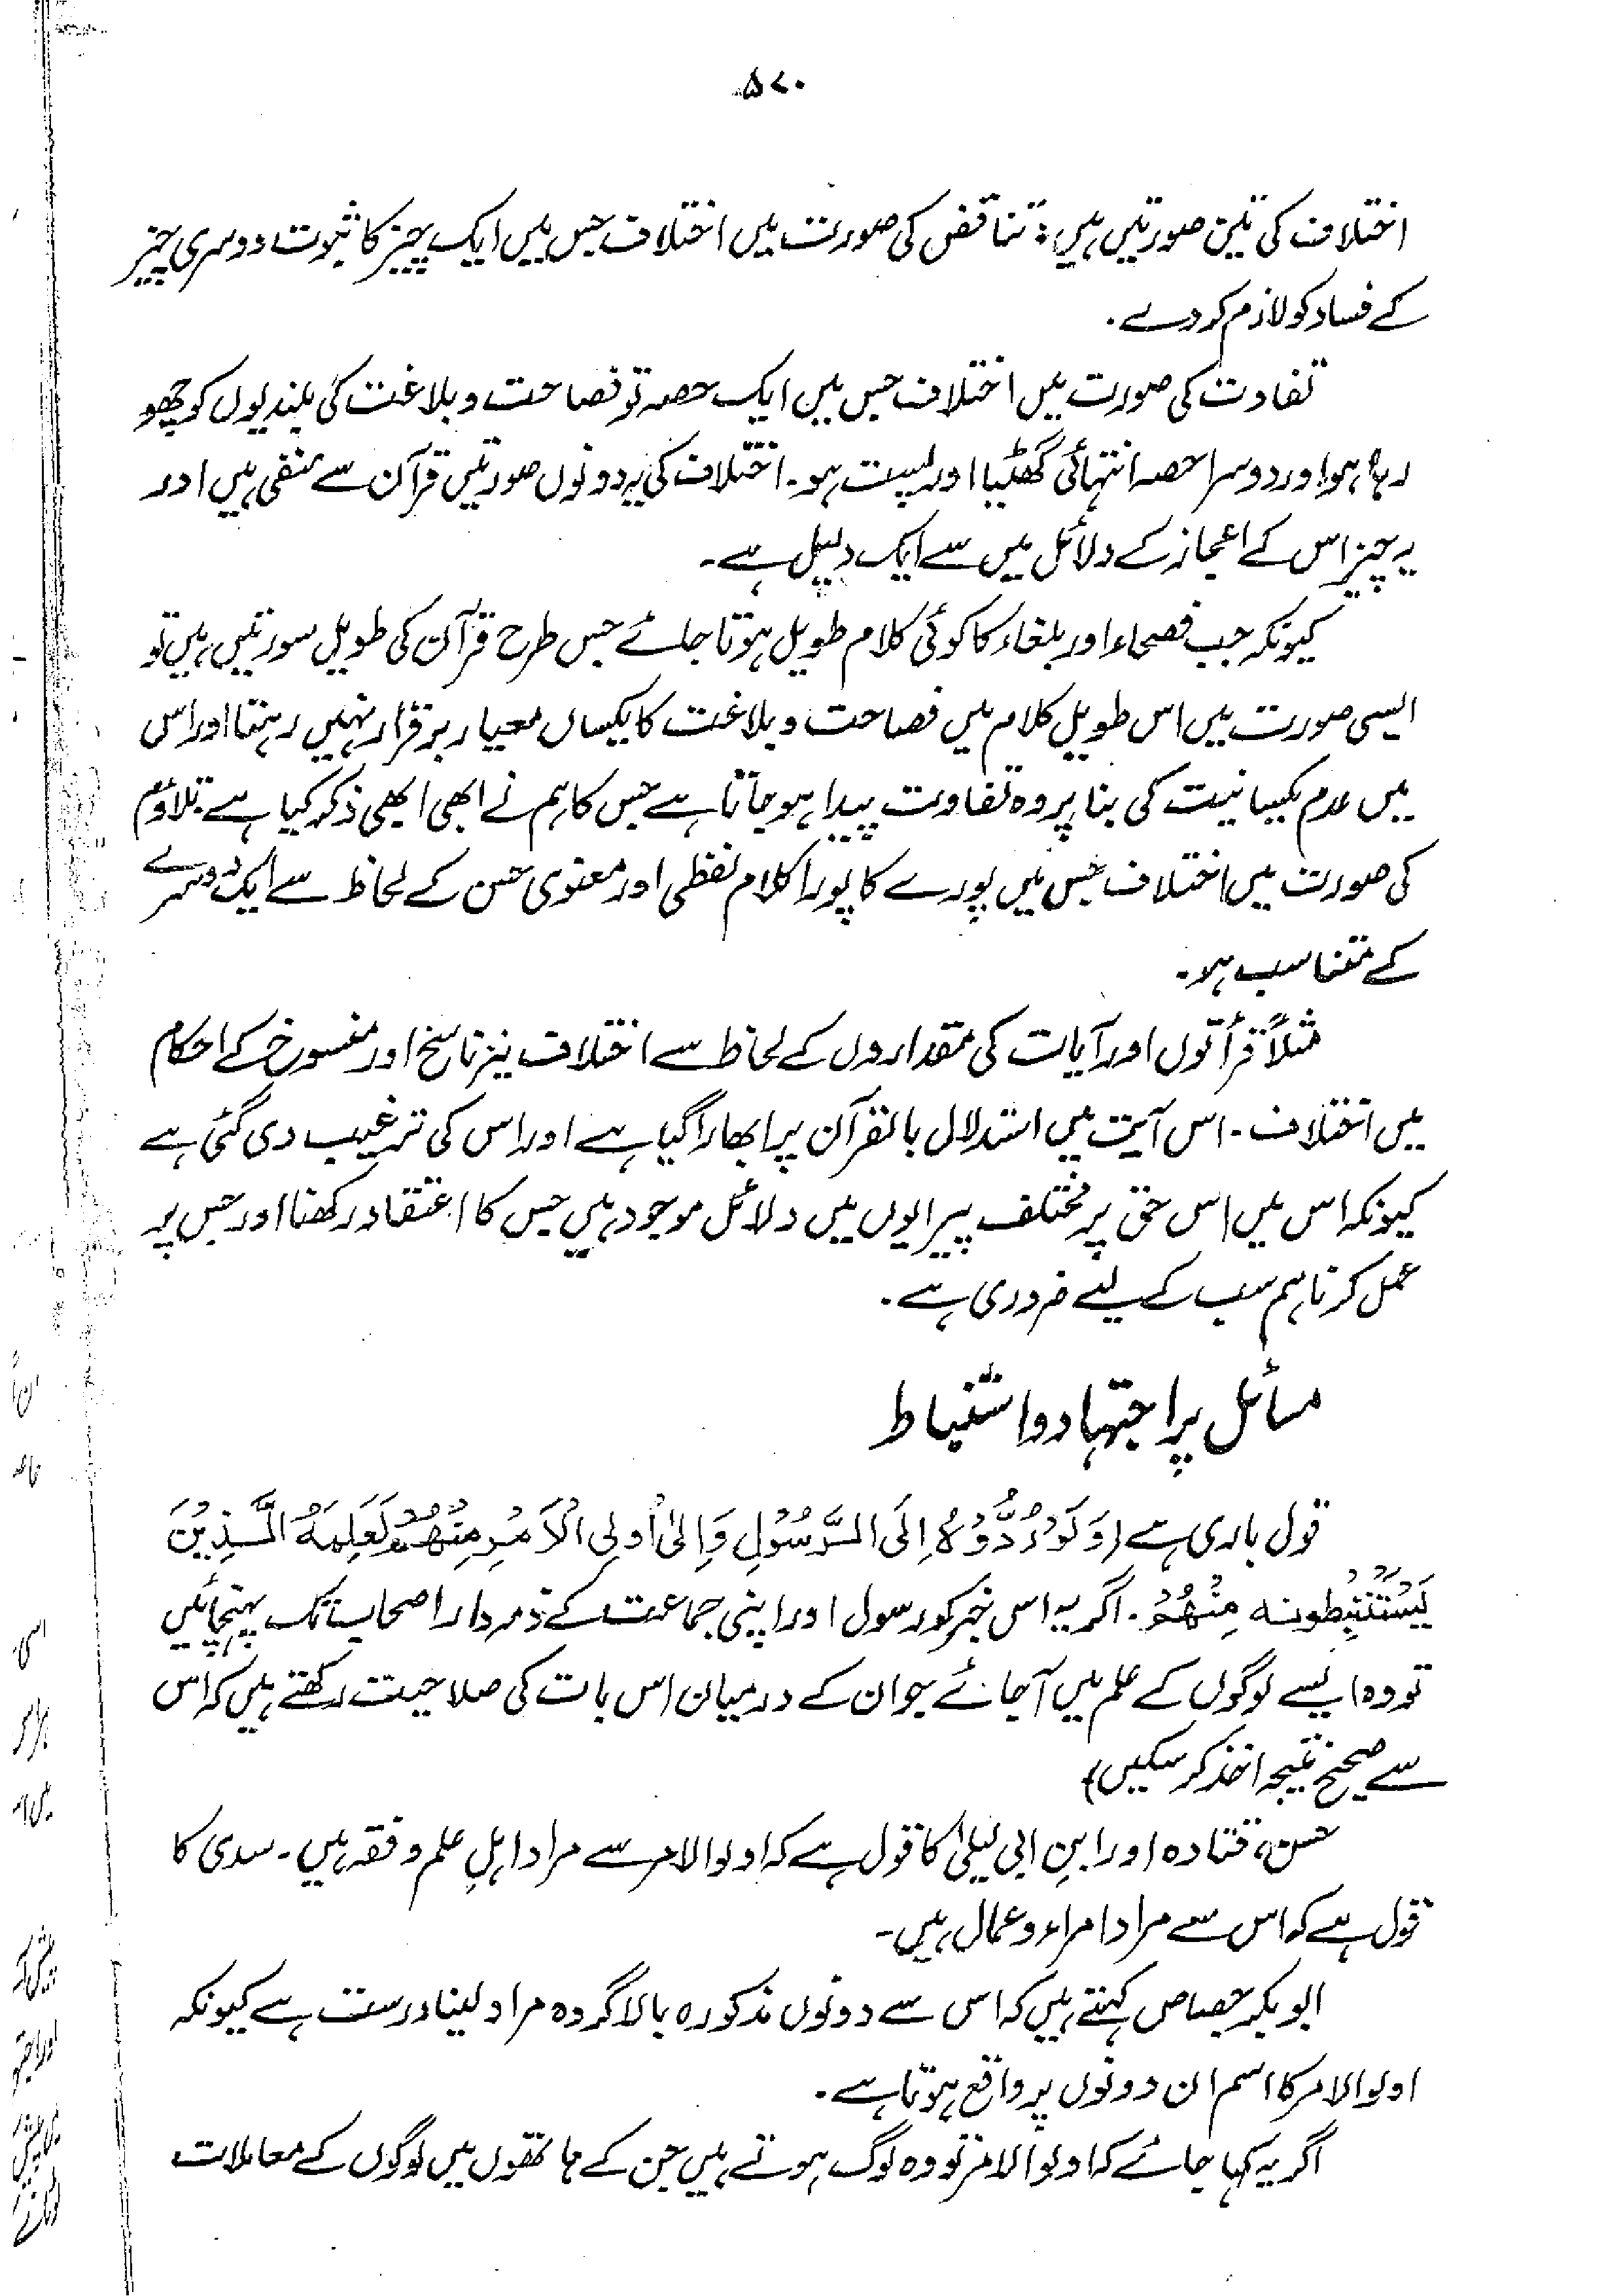 ۵۷۰
اختلاف کی تین صورتیں ہیں: تناقض کی صورت میں اختلاف جس میں ایک چیز کا ثبوت دوسری چیز
کے فساد کو لازم کر دے۔
تفاوت کی صورت میں اختلاف جس میں ایک حصہ تو فصاحت و بلاغت کی بلندیوں کو چھو
رہا ہو اور دوسرا حصہ انتہائی گھٹیا اور پست ہو۔ اختلاف کی یہ دونوں صورتیں قرآن سے منفی ہیں اور
یہ چیز اس کے اعجاز کے دلائل میں سے ایک دلیل ہے۔
کیونکہ جب فصحاء اور بلغاء کا کوئی کلام طویل ہوتا جائے جس طرح قرآن کی طویل سورتیں ہیں تو
ایسی صورت میں اس طویل کلام میں فصاحت و بلاغت کا یکساں معیار برقرار نہیں رہتا اور اس
میں عدم یکسانیت کی بنا پر وہ تفاوت پیدا ہو جاتا ہے جس کا ہم نے ابھی ابھی ذکر کیا ہے تلاؤم
کی صورت میں اختلاف جس میں پورے کا پورا کلام لفظی اور معنوی حسن کے لحاظ سے ایک دوسرے
کے متناسب ہو۔
مثلاً قرأتوں اور آیات کی مقداروں کے لحاظ سے اختلاف نیز ناسخ اور منسوخ کے احکام
میں اختلاف۔ اس آیت میں استدلال بالقرآن پر ابھارا گیا ہے اور اس کی ترغیب دی گئی ہے
کیونکہ اس میں اس حق پر مختلف پیرایوں میں دلائل موجود ہیں جس کا اعتقاد رکھنا اور جس پر
عمل کرنا ہم سب کے لیے ضروری ہے۔
مسائل پر اجتہاد و استنباط
قول باری ہے (وَلَوْ رُدُّوْهُ اِلَى الرَّسُوْلِ وَاِلٰى اُولِى الْاَمْرِ مِنْهُمْ لَعَلِمَهُ الَّذِيْنَ
يَسْتَنْبِطُونه مِنْهُمْ۔ اگر یہ اس خبر کو رسول اور اپنی جماعت کے ذمہ دار اصحاب تک پہنچائیں
تو وہ ایسے لوگوں کے علم میں آجائے جو ان کے درمیان اس بات کی صلاحیت رکھتے ہیں کہ اس
سے صحیح نتیجہ اخذ کر سکیں)
حسن، قتادہ اور ابنِ ابی لیلیٰ کا قول ہے کہ اولوالامر سے مراد اہلِ علم و فقہ ہیں۔ سدی کا
قول ہے کہ اس سے مراد امراء و عمال ہیں۔
ابوبکر جصاص کہتے ہیں کہ اس سے دونوں مذکورہ بالا گروہ مراد لینا درست ہے کیونکہ
اولوالامر کا اسم ان دونوں پر واقع ہوتا ہے۔
اگر یہ کہا جائے کہ اولوالامر تو وہ لوگ ہوتے ہیں جن کے ہاتھوں میں لوگوں کے معاملات